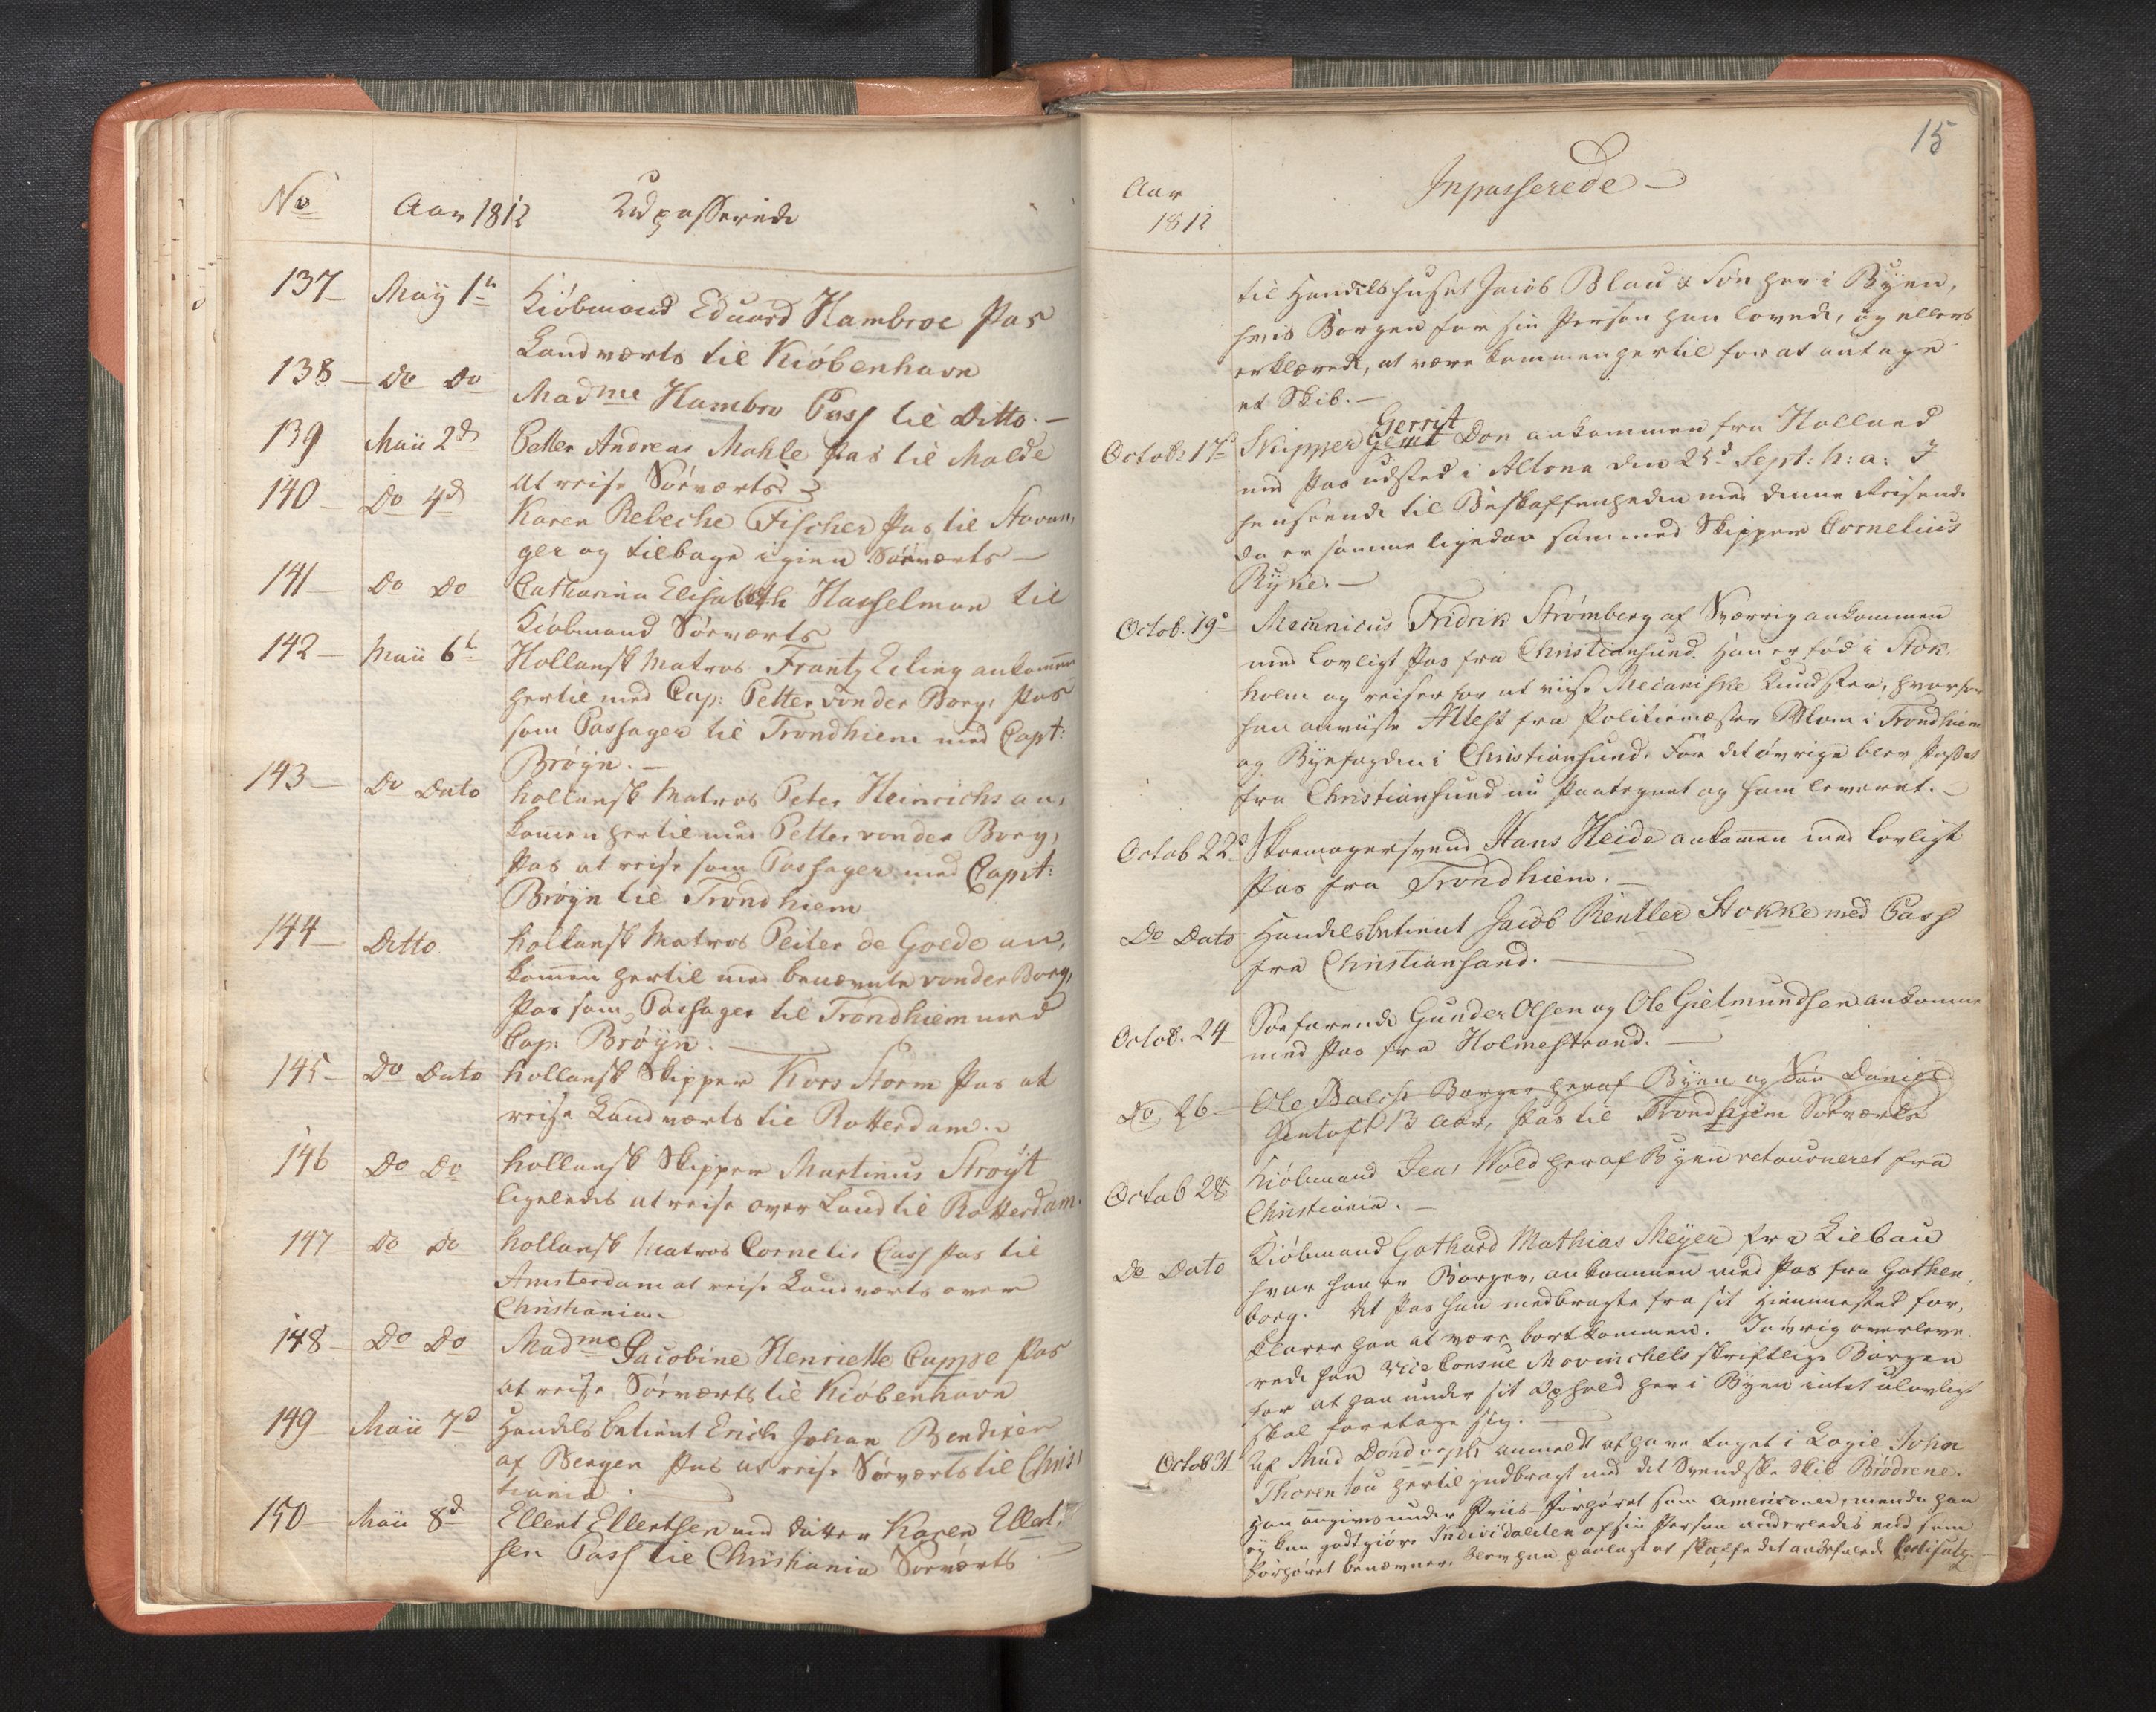 No
Aar 1812
Udpasserede
137 May 1te Kiöbmand Eduard Hambroe Pas
Landværts til Kiöbenhavn
138 Do Do Madme Hambro Pass til Ditto.
139 Maii 2d Petter Andreas Mahle Pas til Molde
at reise Söeværts
140 Do 4d Karen Rebeche Fischer Pas til Stavan,
ger og tilbage igien Söeværts
141 Do Do Catharina Elisabeth Hasselman til
Kiöbmand Söeværts
142 Maii 6te Hollansk Matros Frantz Eiling ankommen
hertil med Cap: Petter von der Borg, Pas
som Passager til Trondhiem med Capt:
Bröyn.
143 Do Dato hollansk Matros Peter Heinrichs an,
kommen hertil med Petter von der Borg,
Pas at reise som Passager med Capit:
Bröyn til Trondhiem
144 Ditto hollansk Matros Peiter de Goede an,
kommen hertil med benævnte von der Borg,
Pas som Passager til Trondhiem med
Cap: Bröyn.
145 Do Dato hollansk Skipper Kors Storm Pas at
reise Landværts til Rotterdam.
146 Do Do hollansk Skipper Martinus Ströyt
ligeledes at reise over Land til Rotterdam.
147 Do Do hollansk Matros Cornelis Cass Pas til
Amsterdam at reise Landværts over
Christiania.
148 Do Do Madme Jacobine Henriette Cuppe Pas
at reise Söeværts til Kiöbenhavn
149 Maii 7d Handelsbetient Erich Johan Bendixen
af Bergen Pas at reise Söeværts til Chris,
tiania.
150 Maii 8d Ellert Ellertsen med datter Karen Ellert,
sen Pass til Christiania Söeværts
15
Aar
1812
Inpasserede
til Handelshuset Jacob Blau & Sön her i Byen,
hvis Borgen for sin Person han lovede, og ellers
erklærede, at være kommen hertil for at antage
et Skib.
Gerrit
Octob 17d Skipper Gerrit Don ankommen fra Holland
med Pas udsted i Altona den 25d Sept: h: a: I
henseende til Beskaffenheden med denne Reisende
da er samme ligedan som med Skipper Cornelius
Ryke.
Octob. 19d Mecanicus Fridrik Strömberg af Sverrig ankommen
med lovligt Pas fra Christiansund. Han er föd i Stok,
holm og reiser for at viise Mecaniske Kundster, hvorfor
han anviiste Attest fra Politiemester Blom i Trondhiem
og Byefogden i Christiansund. For det övrige blev Passet
fra Christiansund nu Paategnet og ham leveret.
Octob 22d Skoemagersvend Hans Heide ankommen med lovligt
Pas fra Trondhiem.
Do Dato Handelsbetient Jacob Rentler Stokke med Pass
fra Christiansand.
Octob. 24 Söefarende Gunder Olsen og Ole Gielmundsen ankomne
med Pas fra Holmestrand.
Do 26 Ole Balch Borger heraf Byen og Sön Daniel
Gentoft 13 Aar, Pas til Trondhiem Söeværts
Octob 28 Kiöbmand Jens Wold heraf Byen retourneret fra
Christiania.
Do Dato Kiöbmand Gothard Mathias Meyer fra Liebau
hvor han er Borger, ankommen med Pas fra Gothen,
borg. Det Pas han medbragte fra sit Hiemmested for,
klarer han at være bortkommen. Iövrig overleve,
rede han Vice Consul Movinckels skriftlige Borgen
for at han under sit Ophold her i Byen intet ulovligt
skal foretage sig.
Octob 31 Af Mad Dondorph anmeldt at have taget i Logie John
Thorenton hertil indbragt med det Svendske Skib Brödrene.
Han angives under Priis-forhöret som Americaner, mende han
ey kan godtgiöre Individaliten af sin Person anderledes end som
forhöret benævner, blev han paalagt at skaffe det anbefalede Certificat,